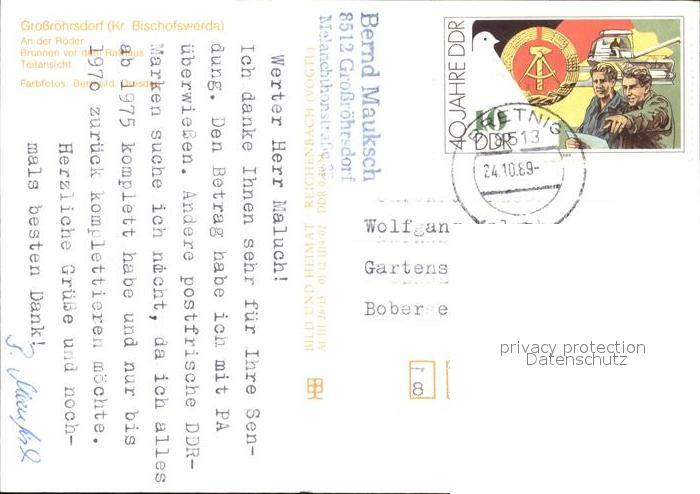 Großröhrsdorf (Kr. Bischofswerda)
An der Röder
Brunnen vor dem Rathaus
Teilansicht
Farbfotos: Dresden
Bernd Mauksch
8512 Großröhrsdorf
Melanchthonstraße
BILD UND HEIMAT REICHENBACH (VOGTL)
Werter Herr Maluch!
Ich danke Ihnen sehr für Ihre Sen-
dung. Den Betrag habe ich mit PA
überwießen. Andere postfrische DDR-
Marken suche ich nicht, da ich alles
ab 1975 komplett habe und nur bis
1970 zurück komplettieren möchte.
Herzliche Grüße und noch-
mals besten Dank!
40 JAHRE DDR
10
DDR
8513
24.10.89-
Wolfgang
Gartens
Boberse
8
privacy protection
Datenschutz